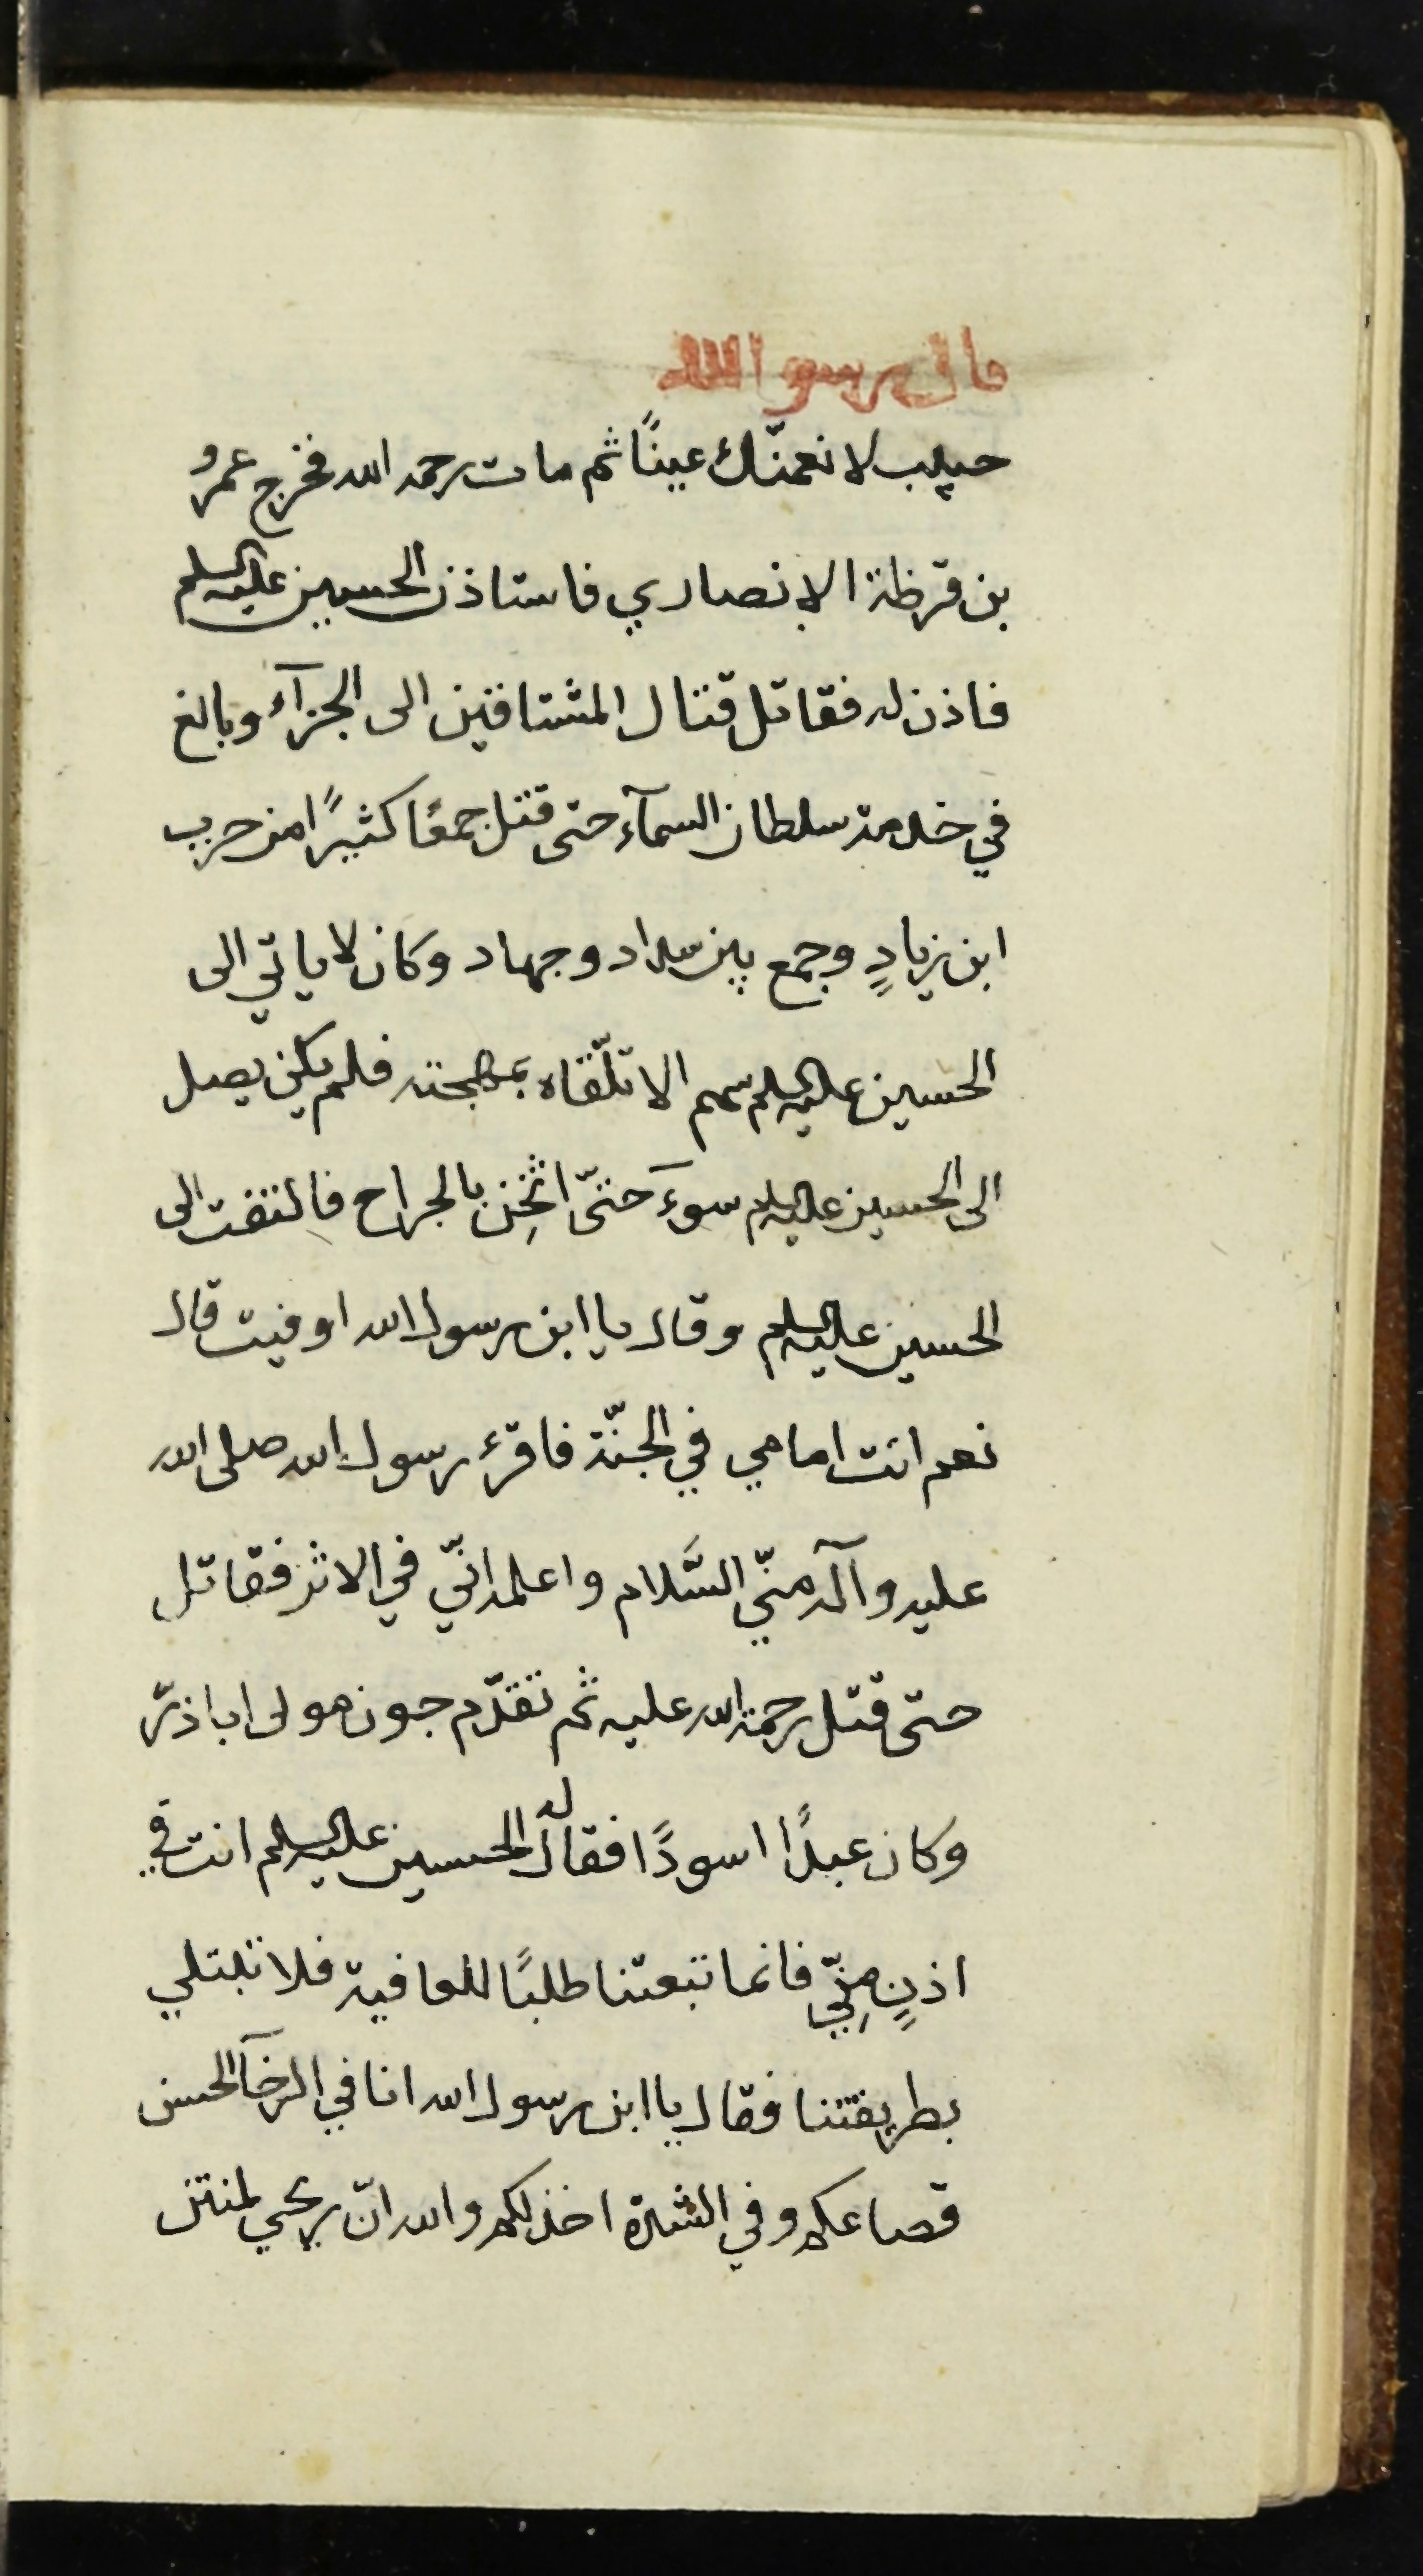 قال رسو الله
حبيب لا نعمنّك عينًا ثم مات رحمه الله فخرج عمرو
بن قرظة الانصاري فاستاذن الحسين عليه السلم
فاذن له فقاتل قتال المشتاقين الى الجزآء وبالغ
في خدمة سلطان السمآء حتى قتل جمعًا كثيرًا من حرب
ابن زيادٍ وجمع بين سداد وجهاد وكان لا ياتي الى
الحسين عليه السلم سهم الا تلّقاه بمهجته فلم يكن يصل
الى الحسين عليه السلم سوءَ حتىّ اثخِن بالجراح فالتفت الى
الحسين عليه السلم وقال يا ابن رسول الله اوفيت قال
نعم انت امامي في الجنّة فاقرء رسول الله صلى الله
عليه وآله منّي السَّلام واعلمه انّي في الاثر فقاتل
حتى قتل رحمة الله عليه ثم تقدّم جون مولى ابا ذرّ
وكان عبدًا اسودًا فقال له الحسين عليه السلم انت في
اذنٍ مِنّي فانما تبعتنا طلبًا للعافية فلا تبتلي
بطريقتنا فقال يا ابن رسول الله انا في الرخآ الحسن
قصاعكم وفي الشدة اخذلكم والله انّ ريحي لمنتن